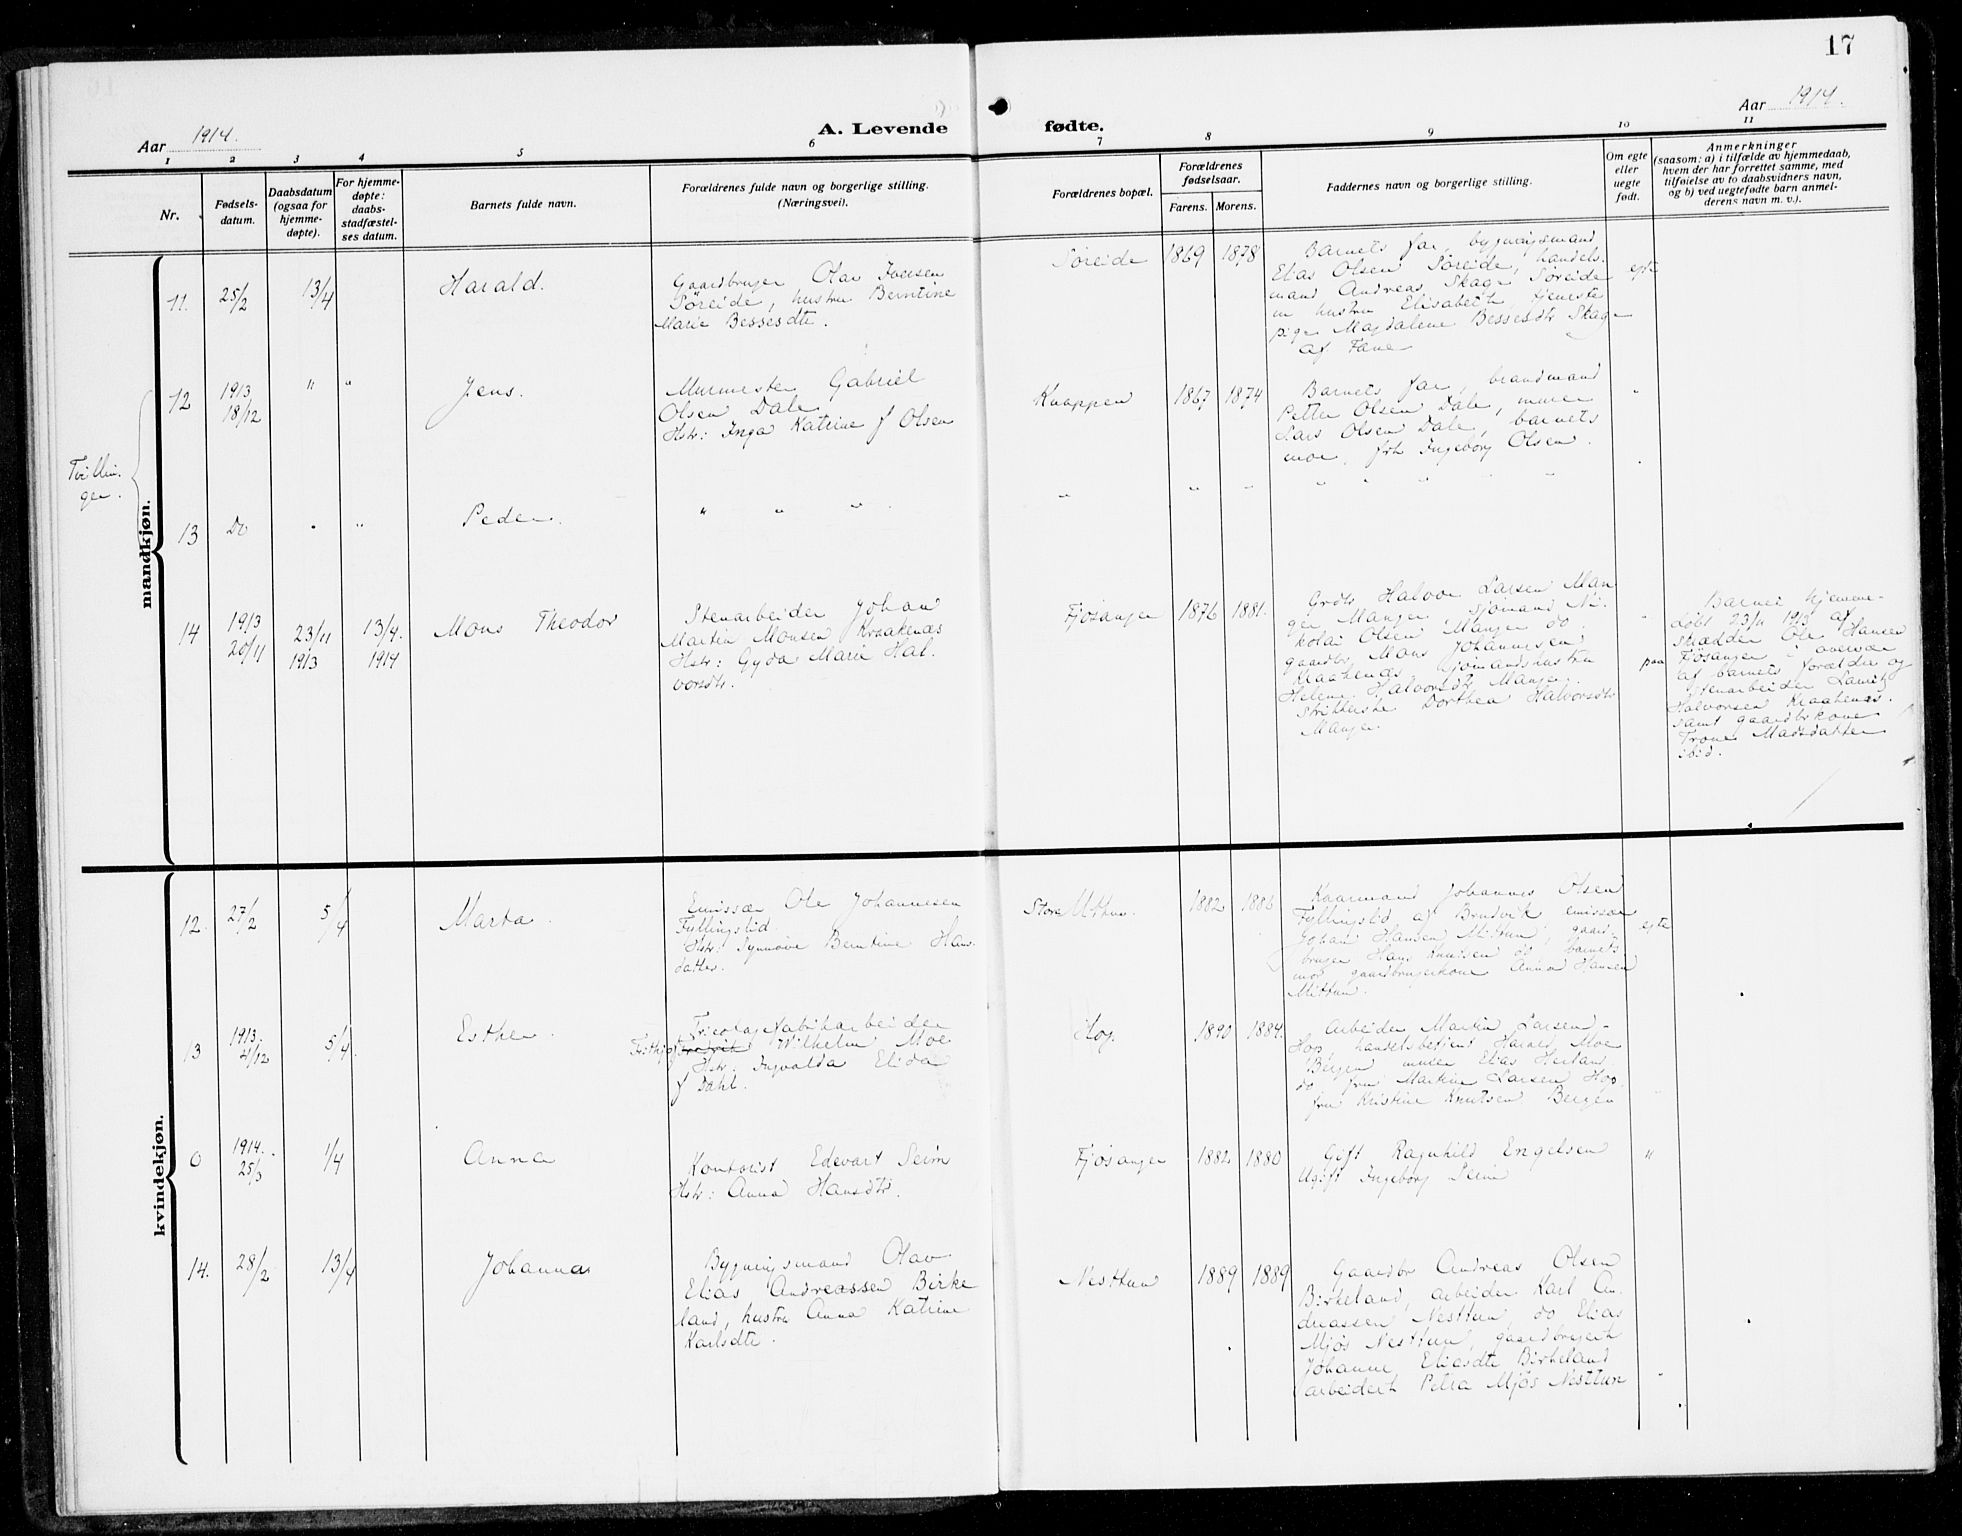 17
Aar 1914.
A. Levende fødte.
Aar 1914.
1 2 3 4 5 6 7 8 9 10 11
Nr.
Fødsels-
datum.
Daabsdatum
(ogsaa for
hjemme-
døpte).
For hjemme-
døpte:
daabs-
stadfæstel-
ses datum.
Barnets fulde navn.
Forældrenes fulde navn og borgerlige stilling.
(Næringsvei).
Forældrenes bopæl.
Forældrenes
fødselsaar.
Farens. Morens.
Faddernes navn og borgerlige stilling.
Om egte
eller
uegte
født.
Anmerkninger
(saasom: a) i tilfælde av hjemmedaab,
hvem der har forrettet samme, med
tilføielse av to daabsvidners navn,
og b) ved uegtefødte barn anmel-
derens navn m. v.).
mandkjøn.
11. 25/2 13/4 Harald.
Gaardbruger Olav Iversen
Søreide, hustru Berntine
Marie Bessesdtr.
Søreide 1869 1878
Barnets far, bygningsmand
Elias Olsen Søreide, handels-
mand Andreas Skage Søreide
m hustru Elisabeth, tjeneste
pige Magdalene Bessesdtr Skage
af Fane
egte
Tvillin-
ger.
12 1913 18/12 " " Jens.
Murmester Gabriel
Olsen Dale
Hstr: Inga Katrine f Olsen
Knappen 1867 1874
Barnets far, brandmand
Petter Olsen Dale, murer
Lars Olsen Dale, barnets
mor, frk Ingeborg Olsen.
"
13 Do " " Peder.
" " "
" " " " " " " "
14 1913 20/11 23/11 1913 13/4. 1914 Mons Theodor
Stenarbeider Johan
Martin Monsen Kraakenæs
Hstr: Gyda Marie Hal-
vorsdtr.
Fjøsanger 1876 1881.
Grdbr Halvor Larsen Man
ger Manger, sjømand Ni-
kolai Olsen Manger do.
gaardbr Mons Johannesen
Kraakenæs sjømandshustru
Helene Halvorsdtr Manger.
strikkerske Dorthea Halvorsdtr
Manger.
"
paa
Barnet hjemme-
døbt 23/11 1913 af
skrædder Ole Hansen
Fjøsanger i overvær
af barnets forældre og
stenarbeider Lauritz
Halvorsen Kraakenes.
samt gaardbrkone
Trone Madsdatter
ibid.
kvindekjøn.
12. 27/2 5/4 Marta.
Emissær Ole Johannesen
Fyllingslid.
Hstr: Synnøve Berntine Hans
datter.
Store Mittun. 1882 1886
Kaarmand Johannes Olsen
Fyllingslid af Brudvik emissær
Johan Hansen Mittun, gaard-
bruger Hans Knutsen do barnets
mor gaardbrugerkone Anna Hansen
Mittun.
egte
13 1913. 4/12 5/4. Esther.
Tricotagefabrikarbeider
Frithjof Wilhelm Moe
Hstr. Ingvalda Elida
f Dahl.
Hop. 1890 1884.
Arbeider Martin Larsen-
Hop, handelsbetjent Harald Moe
Bergen murer Elias Herland
do fru Martine Larsen Hop.
fru Kristine Knutsen Bergen
0 1914. 25/3 1/4 Anna
Kontorist Edevart Seim
Hstr: Anna Hansdtr.
Fjøsanger 1882 1880
Gift Ragnhild Engelsen
Ugift Ingeborg Seim
"
14. 28/2 13/4 Johanna
Bygningsmand Olav
Elias Andreassen Birke
land, hustru Anna Katrine
Karlsdtr.
Nesttun 1889 1889
Gaardbr Andreas Olsen
Birkeland, arbeider Karl An-
dreassen Nesttun, do Elias
Mjøs Nesttun, gaardbrugersk
Johanne Eliasdtr Birkeland
arbeidersk Petra Mjøs Nesttun
"